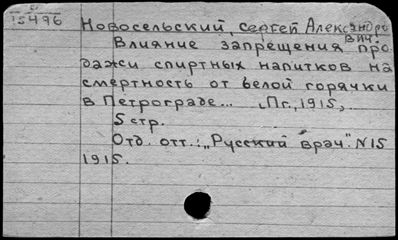 15496
Новосельский, Сергей Александро
вич.
Влияние запрещения про
дажи спиртных напитков на
смертность от белой горячки
в Петрограде... Пг., 1915,
5 стр.
Отд. отт.: „Русский врач". N15
1915.